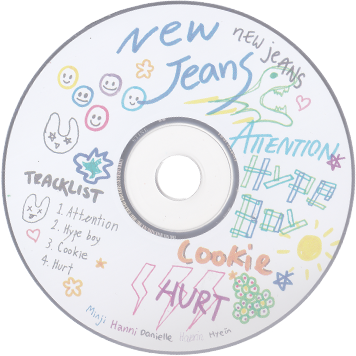 New
Jeans
NEW
JEANS
ATTENTION
HYPE
BOY
TRACKLIST
1. Attention
2. Hype boy
3. Cookie
4. Hurt
Cookie
HURT
Minji Hanni Danielle Haerin Hyein